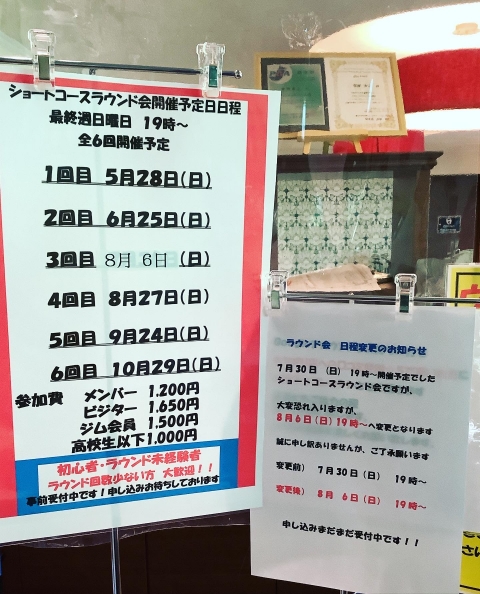 ショートコースラウンド会開催予定日日程
最終週日曜日 19時～
全6回開催予定
1回目 5月28日(日)
2回目 6月25日(日)
3回目 8月 6日 (日)
4回目 8月27日(日)
5回目 9月24日(日)
6回目 10月29日(日)
参加費 メンバー 1.200円
ビジター 1.650円
ジム会員 1.500円
高校生以下1,000円
初心者・ラウンド未経験者
ラウンド回数少ない方 大歓迎！！
事前受付中です！申し込みお待ちしております
ラウンド会 日程変更のお知らせ
7月30日 (日) 19時～開催予定でした
ショートコースラウンド会ですが、
大変恐れ入りますが、
8月6日(日)19時～へ変更となります
誠に申し訳ありませんが、ご了承願います
変更前) 7月30日(日) 19時～
変更後) 8月 6日(日) 19時～
申し込みまだまだ受付中です！！